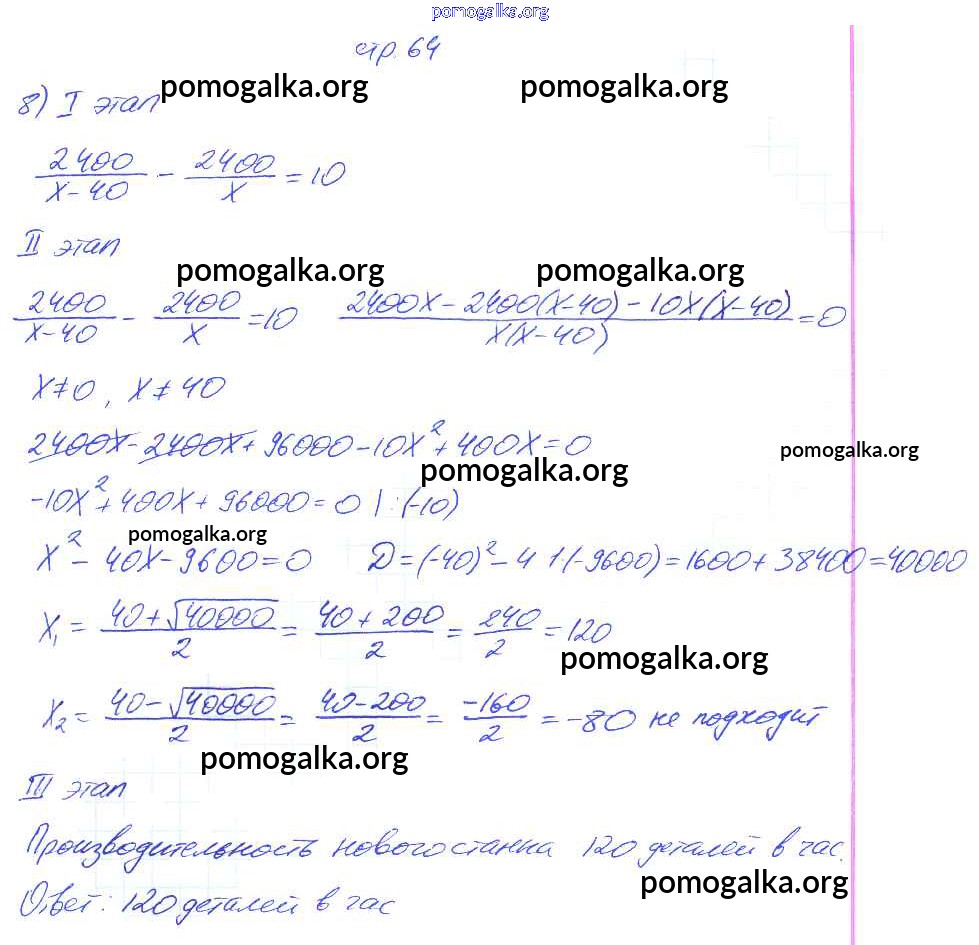 pomogalka.org
стр. 64
pomogalka.org pomogalka.org
8) I этап
2400/(x-40) - 2400/x = 10
II этап
pomogalka.org pomogalka.org
2400/(x-40) - 2400/x = 10 (2400x - 2400(x-40) - 10x(x-40))/(x(x-40)) = 0
x≠0, x≠40
2400x - 2400x + 96000 - 10x² + 400x = 0
pomogalka.org
pomogalka.org
-10x² + 400x + 96000 = 0 | : (-10)
pomogalka.org
x² - 40x - 9600 = 0 D = (-40)² - 4·1·(-9600) = 1600 + 38400 = 40000
x₁ = (40+√40000)/2 = (40+200)/2 = 240/2 = 120
pomogalka.org
x₂ = (40-√40000)/2 = (40-200)/2 = -160/2 = -80 не подходит
pomogalka.org
III этап
Производительность нового станка 120 деталей в час.
pomogalka.org
Ответ: 120 деталей в час